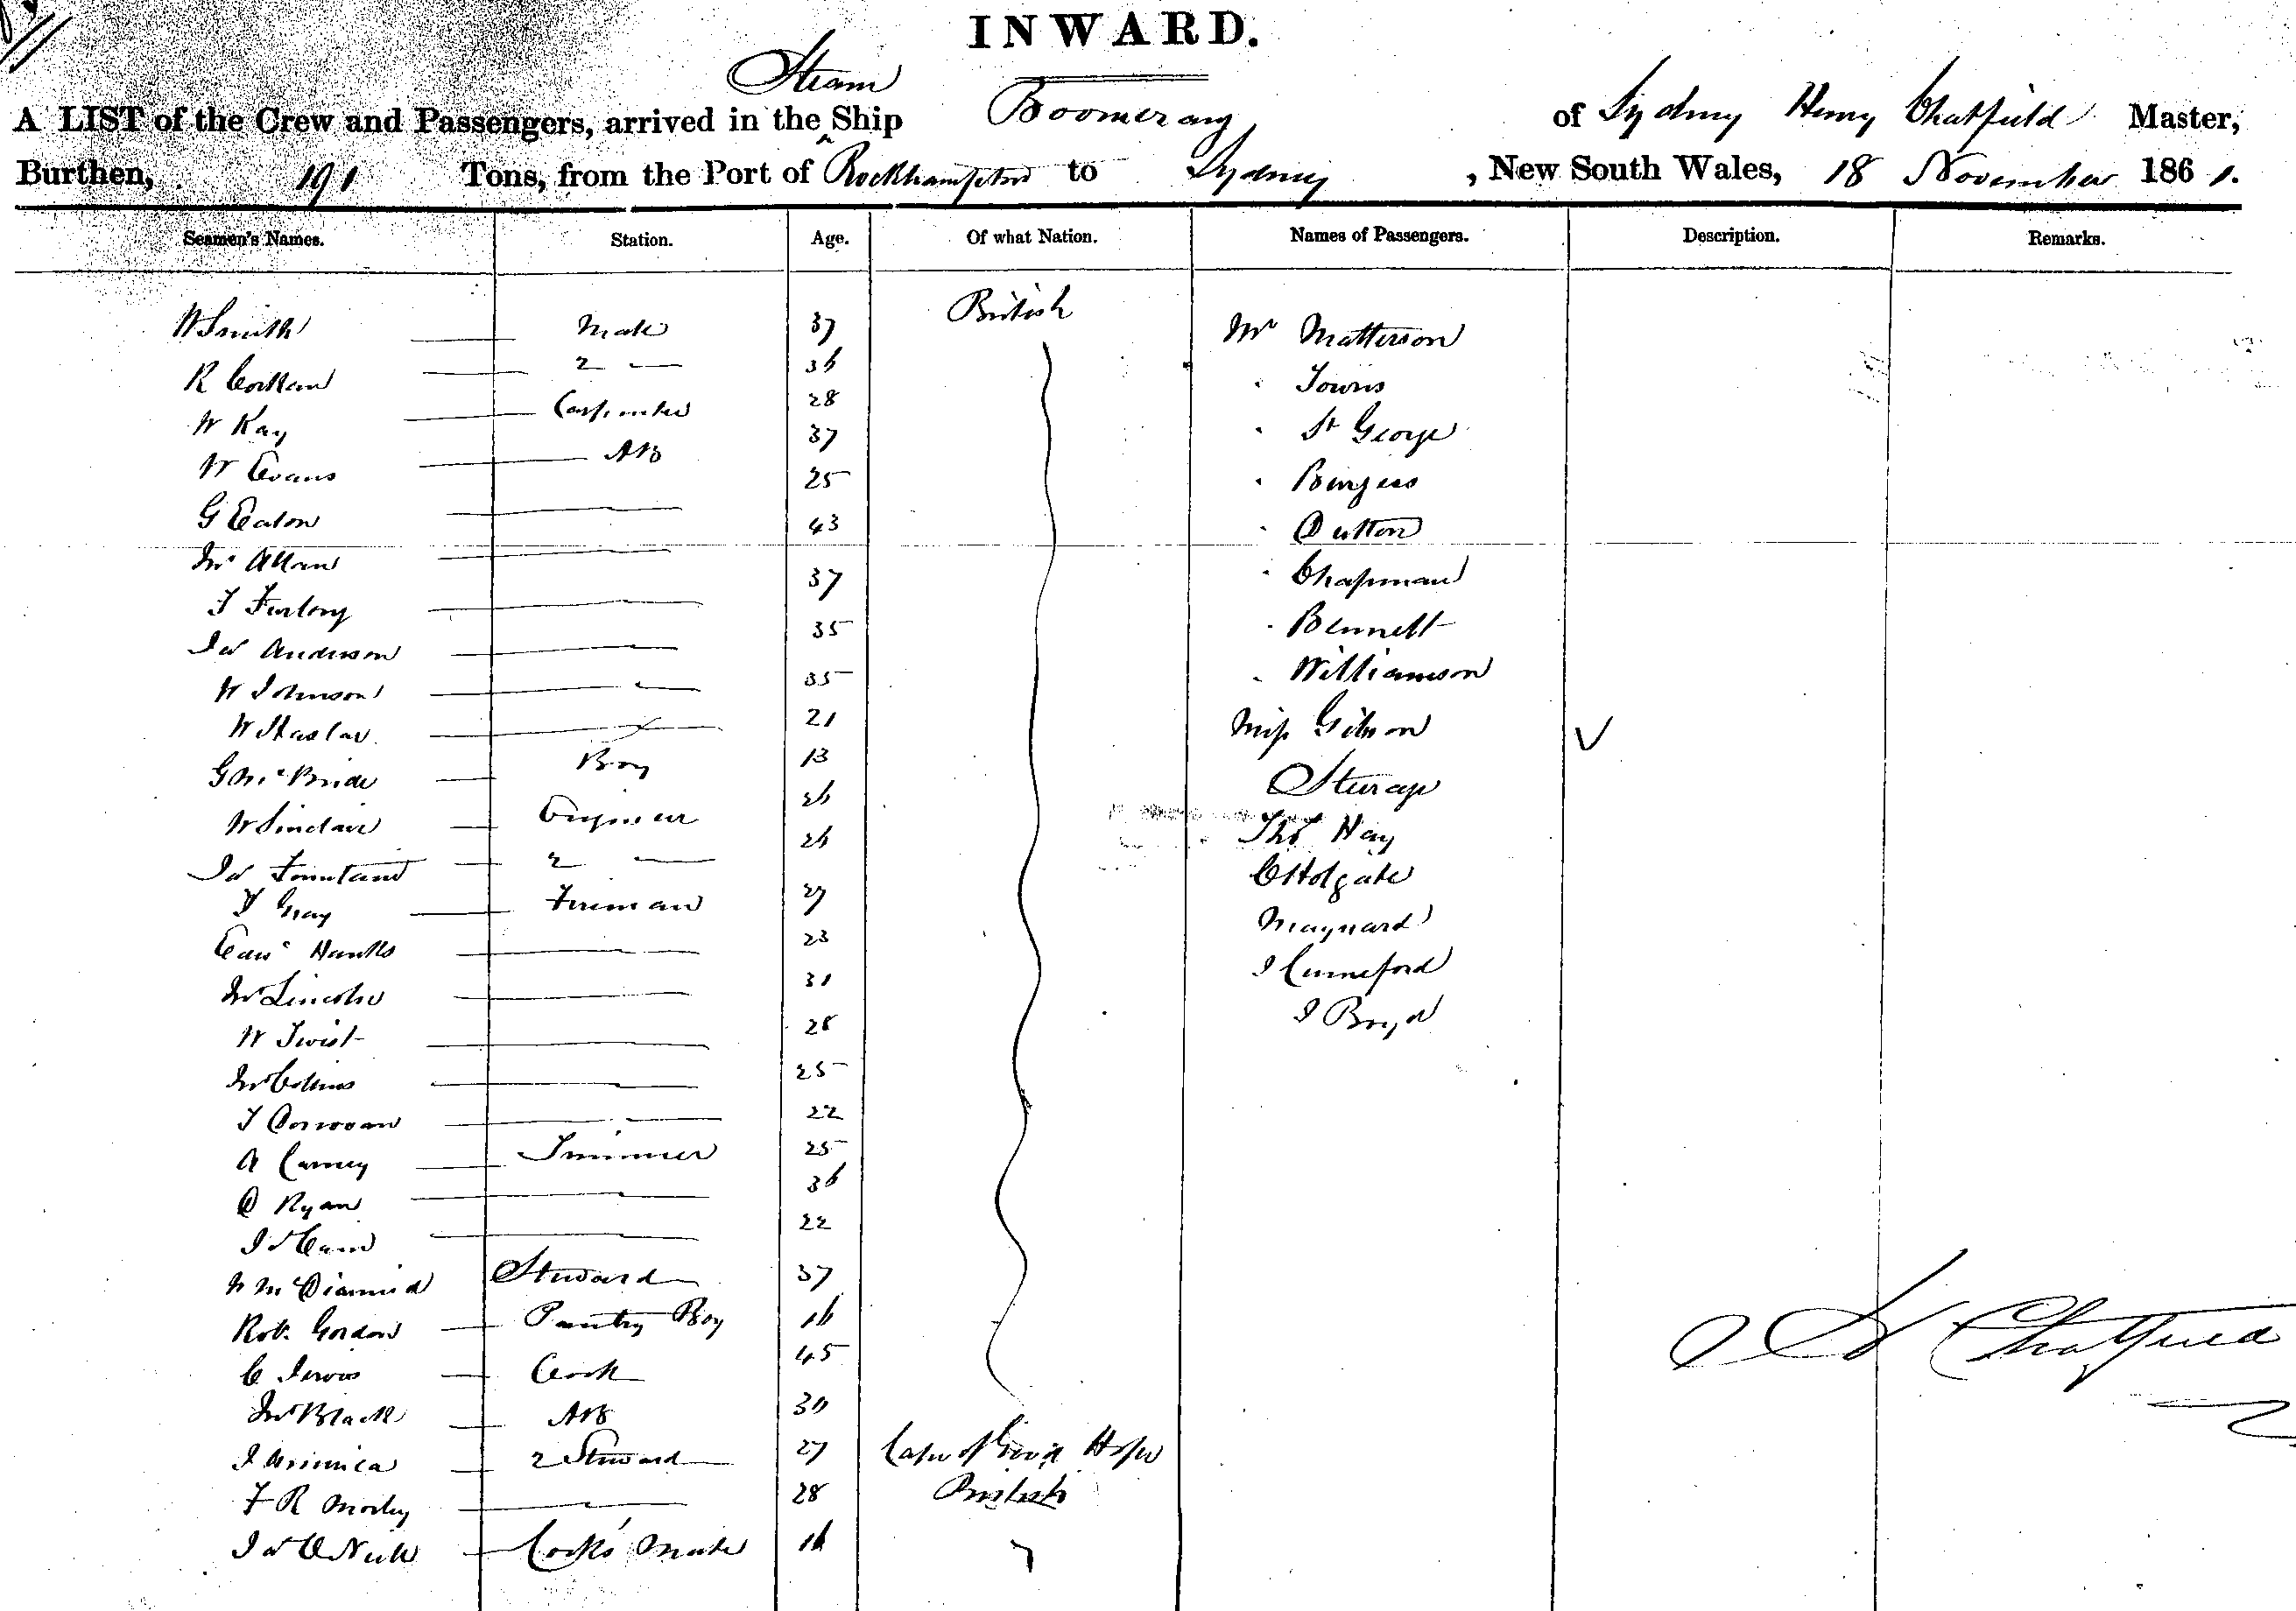 INWARD.
Steam
A LIST of the Crew and Passengers, arrived in the ^ Ship Boomerang of Sydney Henry Chatfield Master,
Burthen, 191 Tons, from the Port of Rockhampton to Sydney , New South Wales, 18 November 1861.
Seamen's Names. Station. Age. Of what Nation. Names of Passengers. Description. Remarks.
W Smith — Mate 37 British Mr Matterson
R — 2 — 36 " Towns
W Kay — Carpenter 28 " St George
W Evans — AB 37 " Burgess
G Eaton — 25 " Dutton
Jno Allan — 43 " Chapman
T Furlong — 37 " Bennett
Jas Anderson — 35 " Williamson
W Johnson — 35 Miss Gibson V
W Haslar — 21 Sturage
G McBride — Boy 13 Thos Hay
W Sinclair — Engineer 26 C Holgate
Jas — 2 — 26 Maynard
T Gray — Fireman 27 J Cunneford
Edwd Hanks — 23 J Boyd
Jno Lincoln — 31
W Twist — 28
Jno Collins — 25
T Donovan — 22
A Carney — Trimmer 25
D Ryan — 36
Jas Cain — 22
N McDiarmid Steward 37
Robt Gordon — Pantry Boy 16
C Jervos — Cook 45
Jno Black — AB 30
J — 2 Steward 27 Cape of Good Hope
F R Morley — 28 British
Jas O'Neill — Cooks' Mate 16
Chatfield